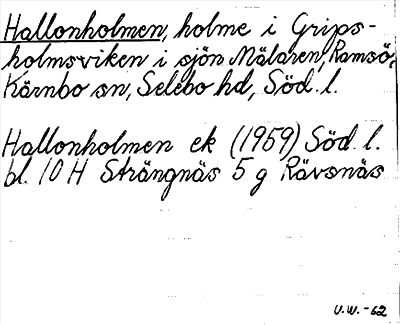 Hallonholmen, holme i Grips-
holmsviken i sjön Mälaren, Ramsö,
Kärnbo sn, Selebo hd, Söd. l.
Hallonholmen ek (1959) Söd. l.
bl. 10 H Strängnäs 5 g Rävsnäs
U.W. -62